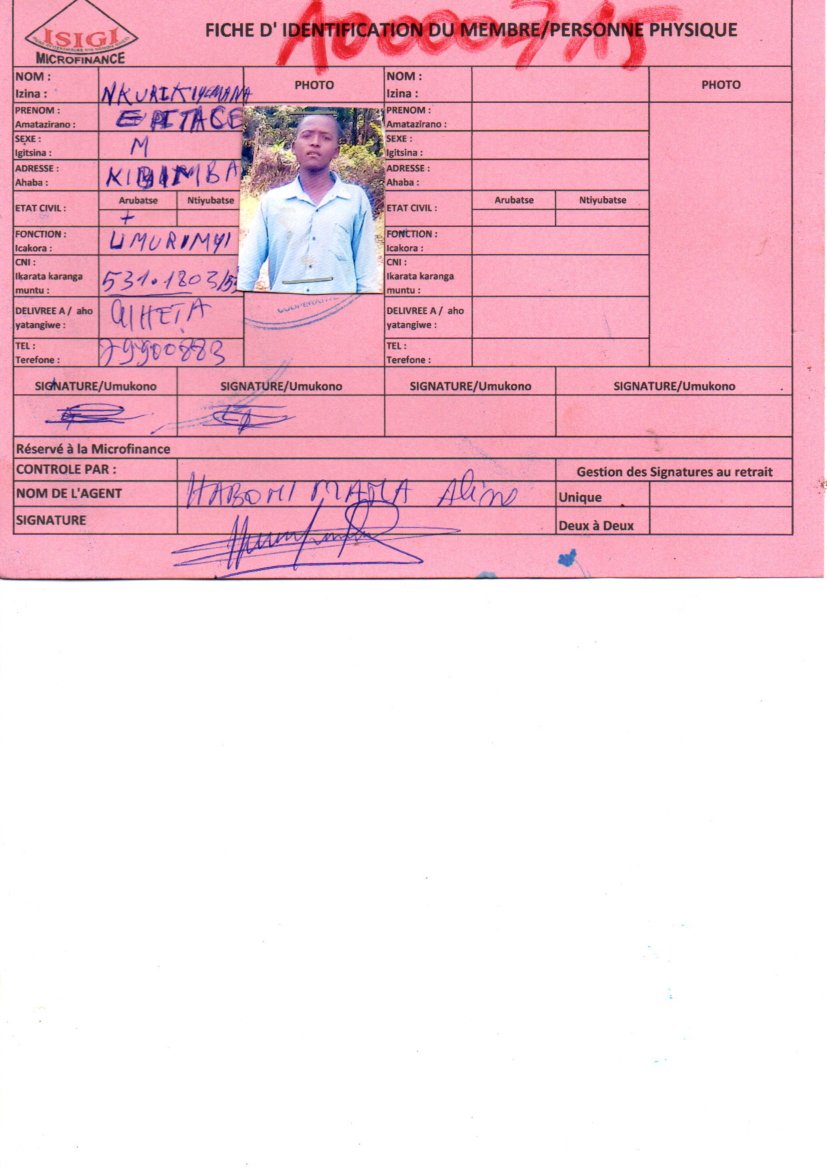 ISIGI
MICROFINANCE
FICHE D' IDENTIFICATION DU MEMBRE/PERSONNE PHYSIQUE
A00000715
NOM :
Izina : NKURIKIYEMANA
PHOTO
PRENOM :
Amatazirano : EPITACE
SEXE :
Igitsina : M
ADRESSE :
Ahaba : KIBIMBA
ETAT CIVIL : Arubatse Ntiyubatse
+
FONCTION :
Icakora : UMURIMYI
CNI :
Ikarata karanga
muntu : 531.1803/
DELIVREE A / aho
yatangiwe : GIHETA
TEL :
Terefone : 79900883
COOPERATIVE
NOM :
Izina :
PHOTO
PRENOM :
Amatazirano :
SEXE :
Igitsina :
ADRESSE :
Ahaba :
ETAT CIVIL : Arubatse Ntiyubatse
FONCTION :
Icakora :
CNI :
Ikarata karanga
muntu :
DELIVREE A / aho
yatangiwe :
TEL :
Terefone :
SIGNATURE/Umukono SIGNATURE/Umukono SIGNATURE/Umukono SIGNATURE/Umukono
Réservé à la Microfinance
CONTROLE PAR : Gestion des Signatures au retrait
NOM DE L'AGENT HABONIMANA Aline Unique
SIGNATURE Deux à Deux